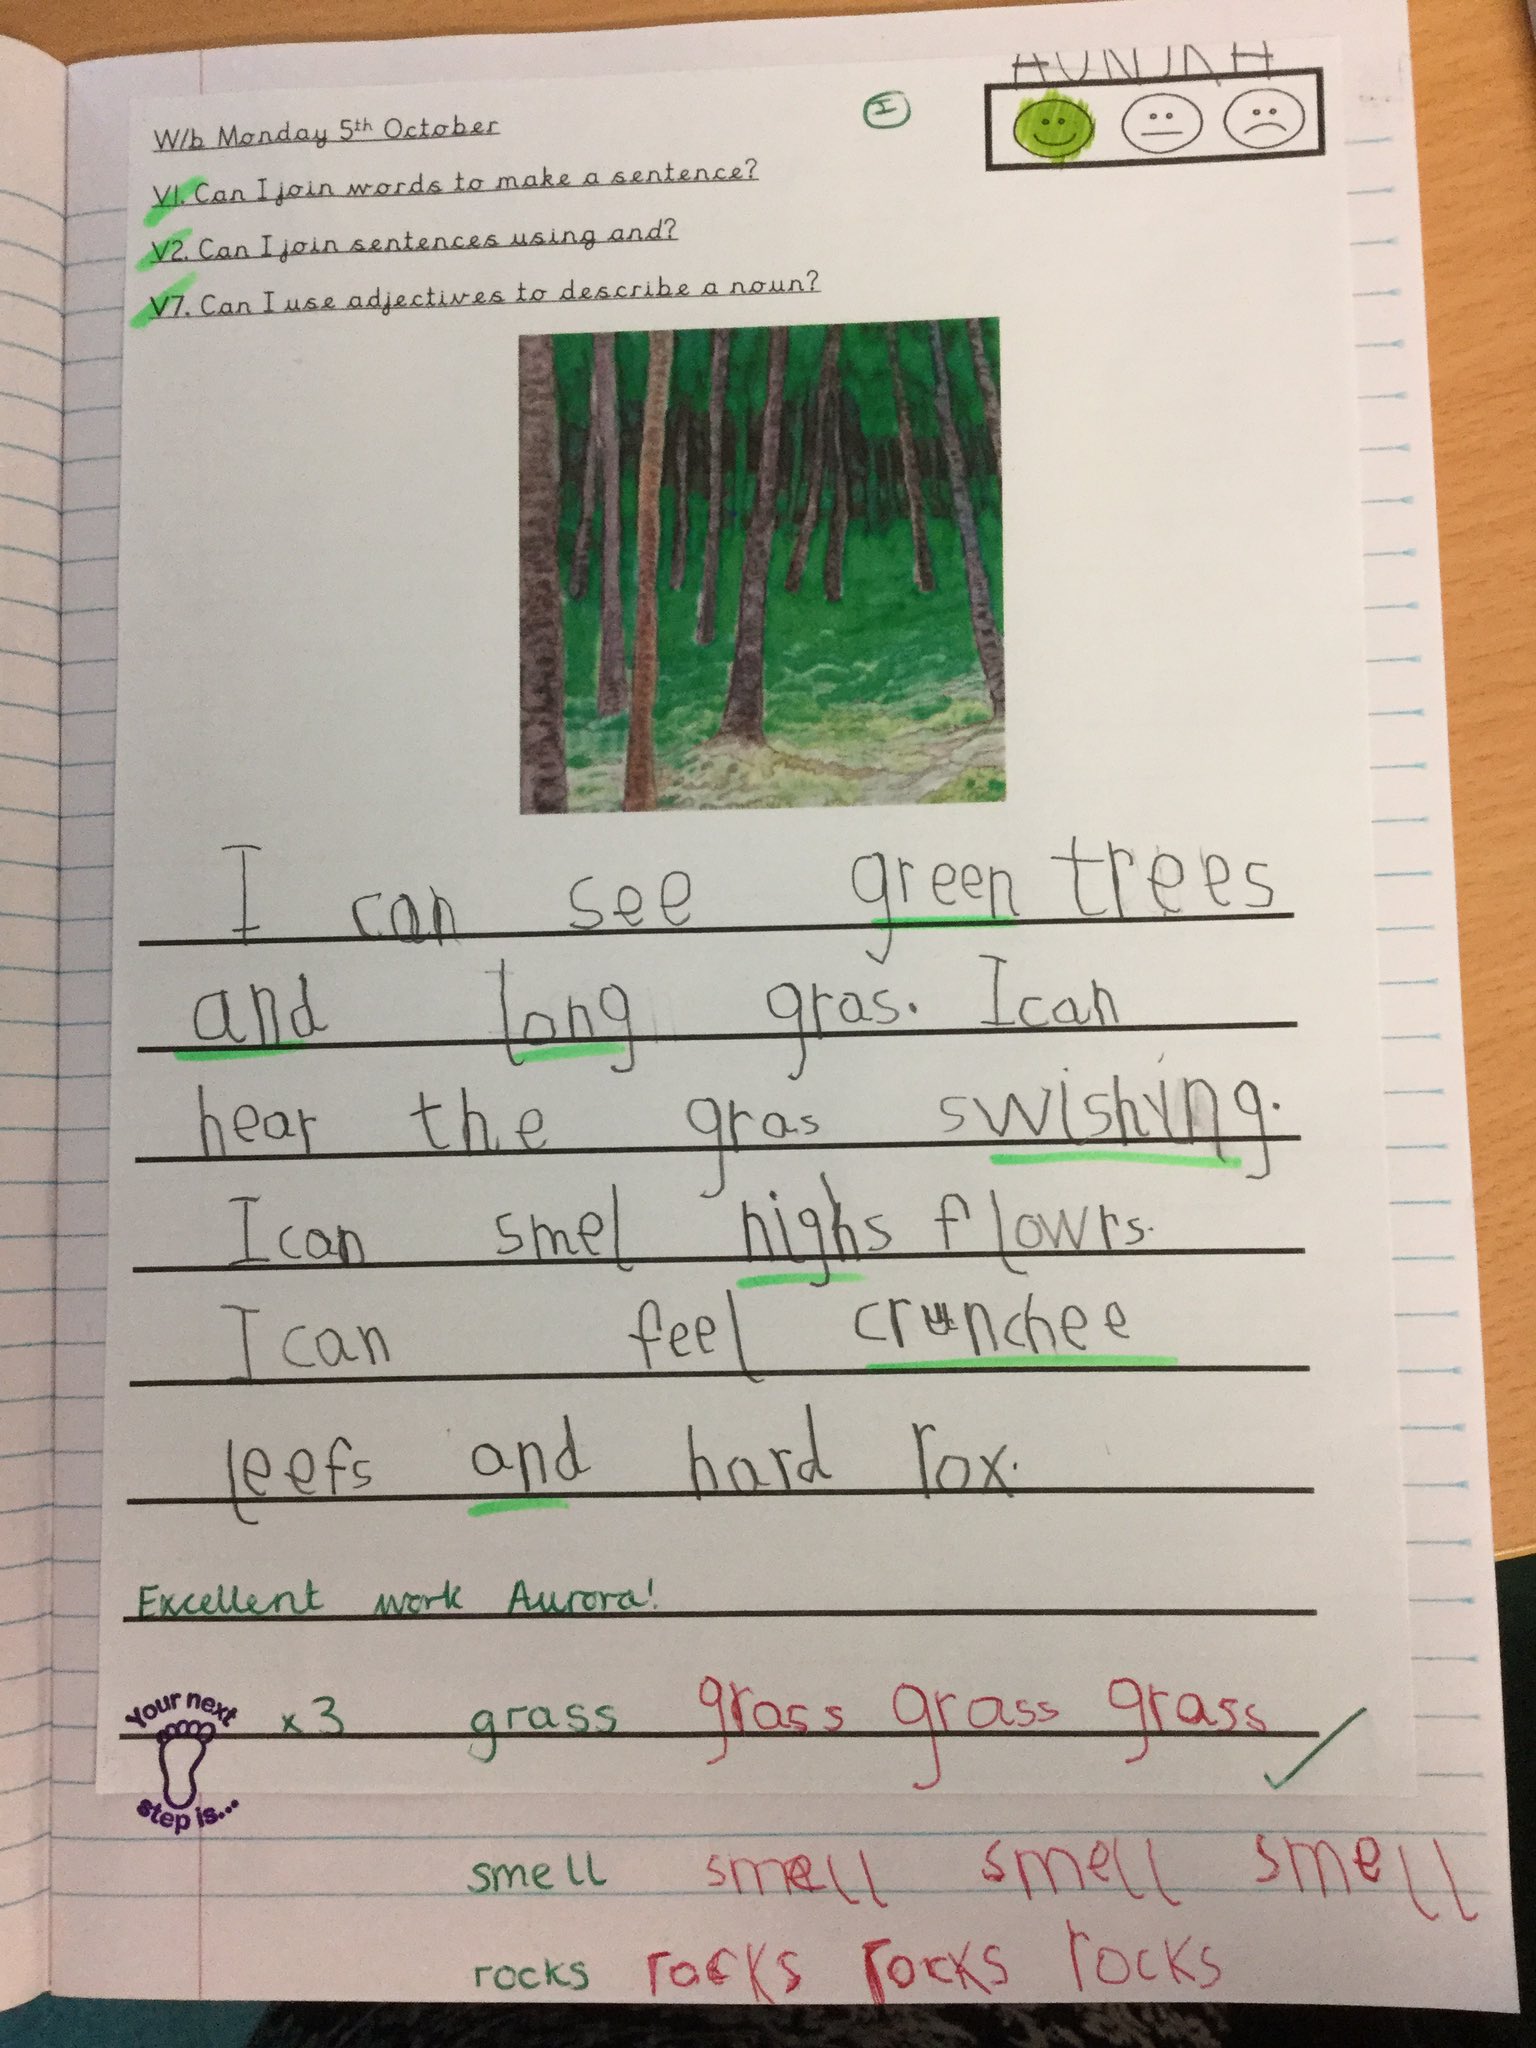 AURORA
I
W/b Monday 5th October
V1. Can I join words to make a sentence?
V2. Can I join sentences using and?
V7. Can I use adjectives to describe a noun?
I can see green trees
and long gras. I can
hear the gras swishing.
I can smel nighs flowrs.
I can feel crunchee
leefs and hard rox.
Excellent work Aurora!
Your next step is... x3 grass grass grass grass
smell smell smell smell
rocks rocks rocks rocks